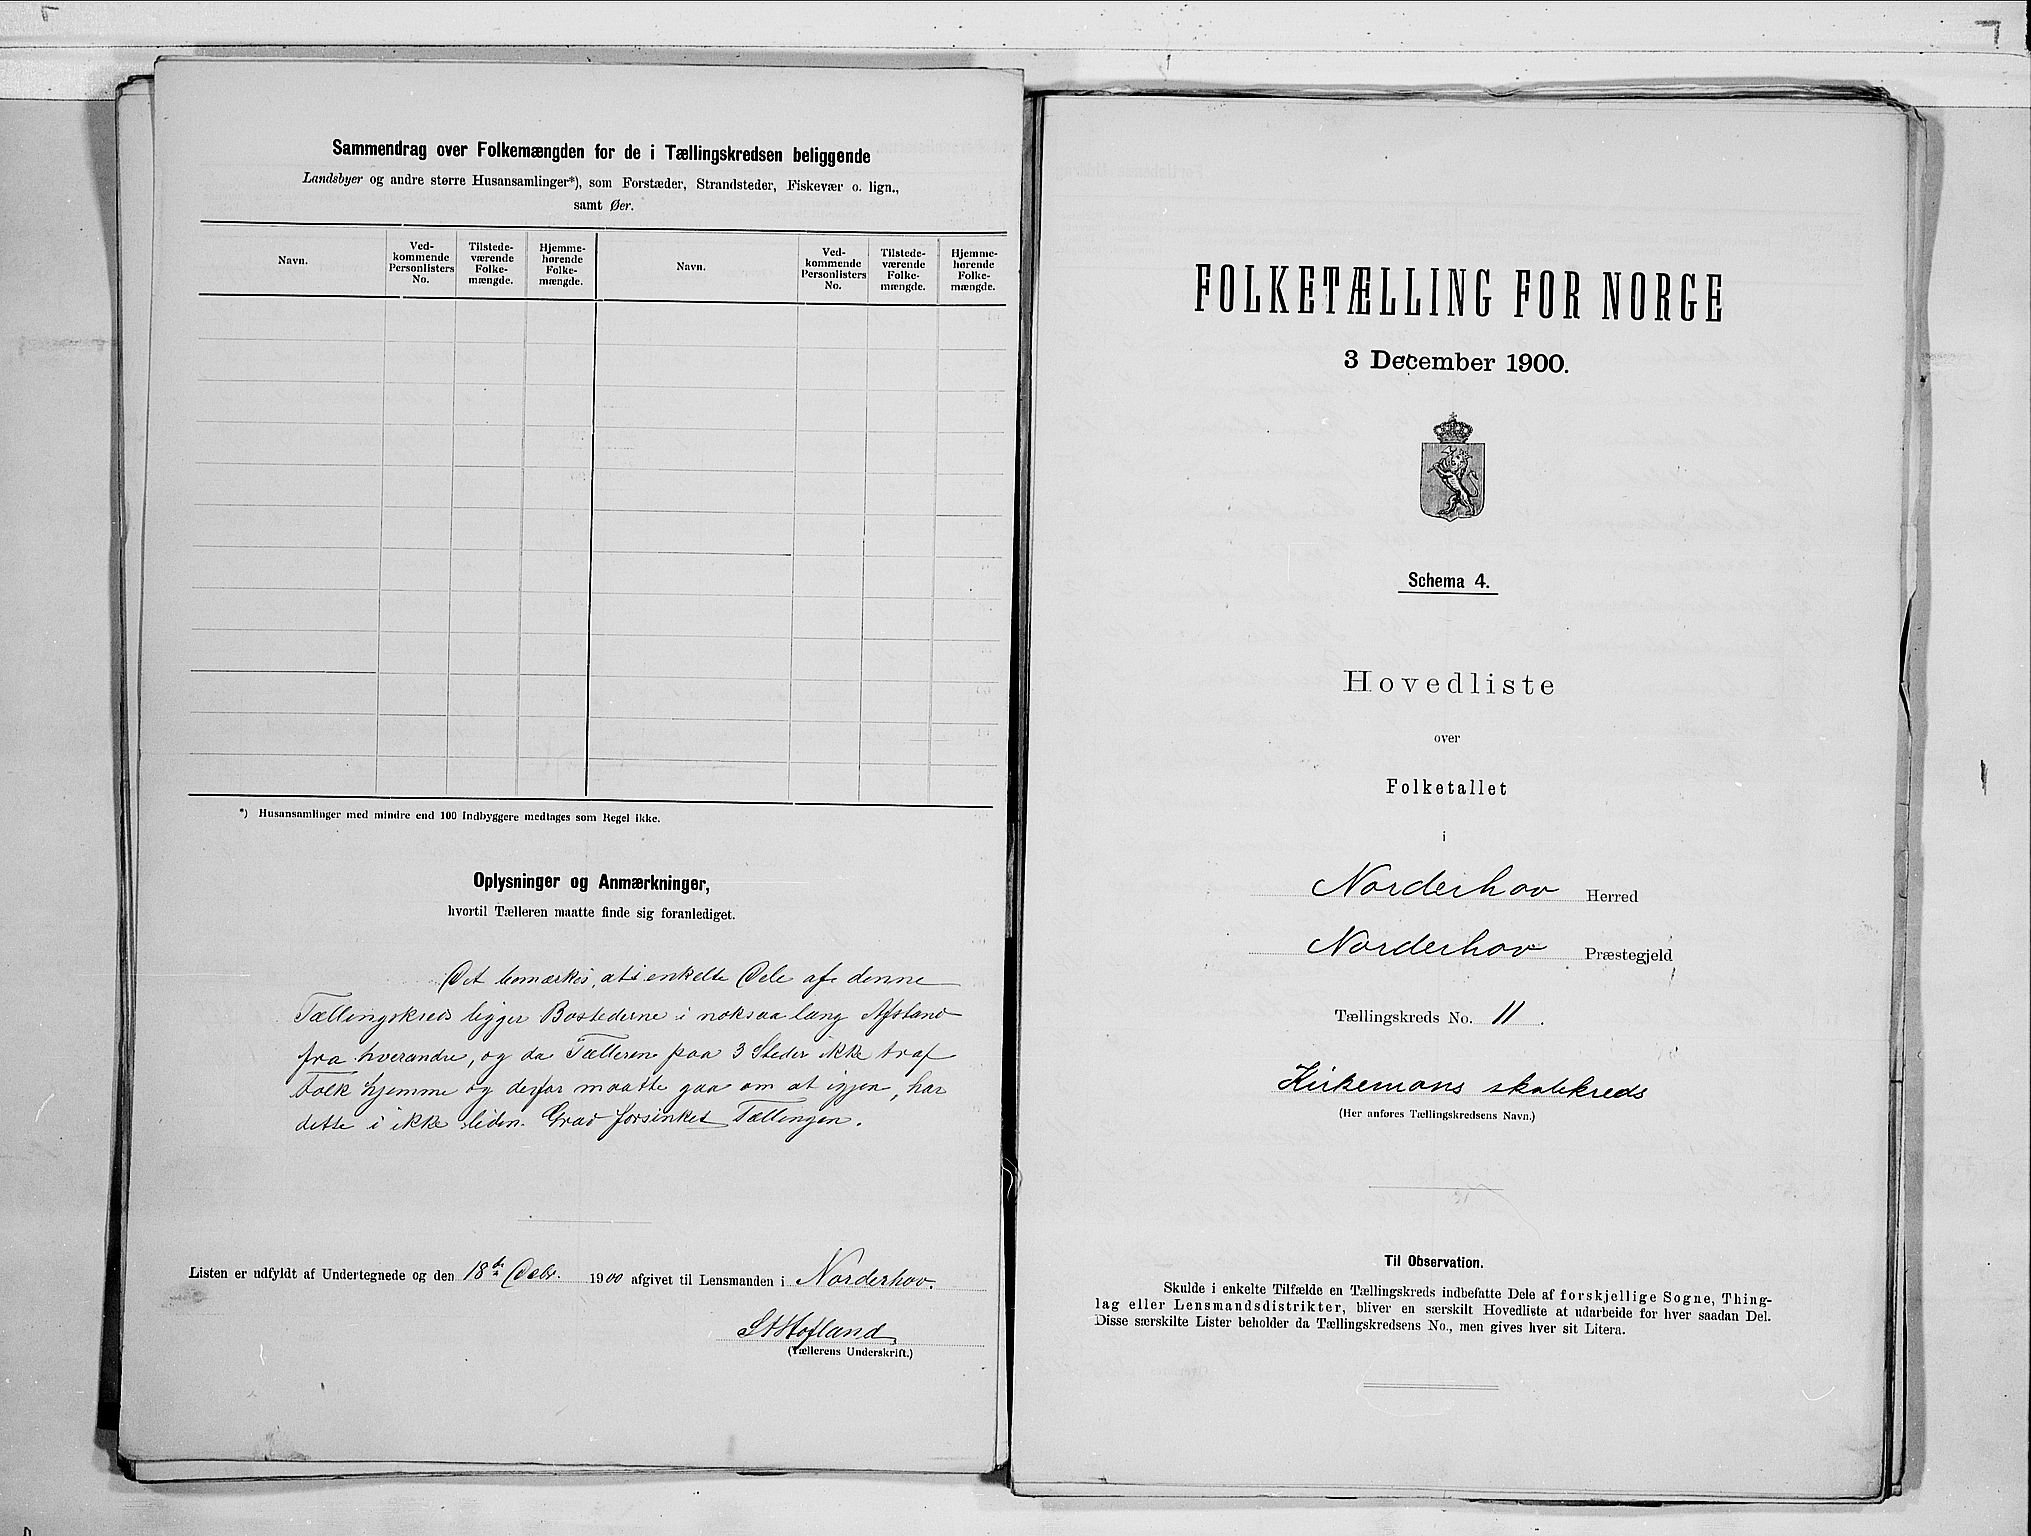 Sammendrag over Folkemængden for de i Tællingskredsen beliggende
Landsbyer og andre større Husansamlinger*), som Forstæder, Strandsteder, Fiskevær o. lign.,
samt Øer.
Navn.
Ved-
kommende
Personlisters
No.
Tilstede-
værende
Folke-
mængde.
Hjemme-
hørende
Folke-
mængde.
Navn.
Ved-
kommende
Personlisters
No.
Tilstede-
værende
Folke-
mængde.
Hjemme-
hørende
Folke-
mængde.
*) Husansamlinger med mindre end 100 Indbyggere medtages som Regel ikke.
Oplysninger og Anmærkninger,
hvortil Tælleren maatte finde sig foranlediget.
Det bemærkes, at i enkelte Dele af denne
Tællingskreds ligger Bostederne i noksaa lang Afstand
fra hverandre, og da Tælleren paa 3 Steder ikke traf
Folk hjemme og derfor maatte gaa om at igjen, har
dette i ikke liden Grad forsinket Tællingen.
Listen er udfyldt af Undertegnede og den 18de Debr. 1900 afgivet til Lensmanden i Norderhov.
Hofland
(Tællerens Underskrift.)
FOLKETÆLLING FOR NORGE
3 December 1900.
Schema 4.
Hovedliste
over
Folketallet
i
Norderhov Herred
Norderhov Præstegjeld
Tællingskreds No. 11.
Kirkemoens skolekreds
(Her anføres Tællingskredsens Navn.)
Til Observation.
Skulde i enkelte Tilfælde en Tællingskreds indbefatte Dele af forskjellige Sogne, Thing-
lag eller Lensmandsdistrikter, bliver en særskilt Hovedliste at udarbeide for hver saadan Del.
Disse særskilte Lister beholder da Tællingskredsens No., men gives hver sit Litera.